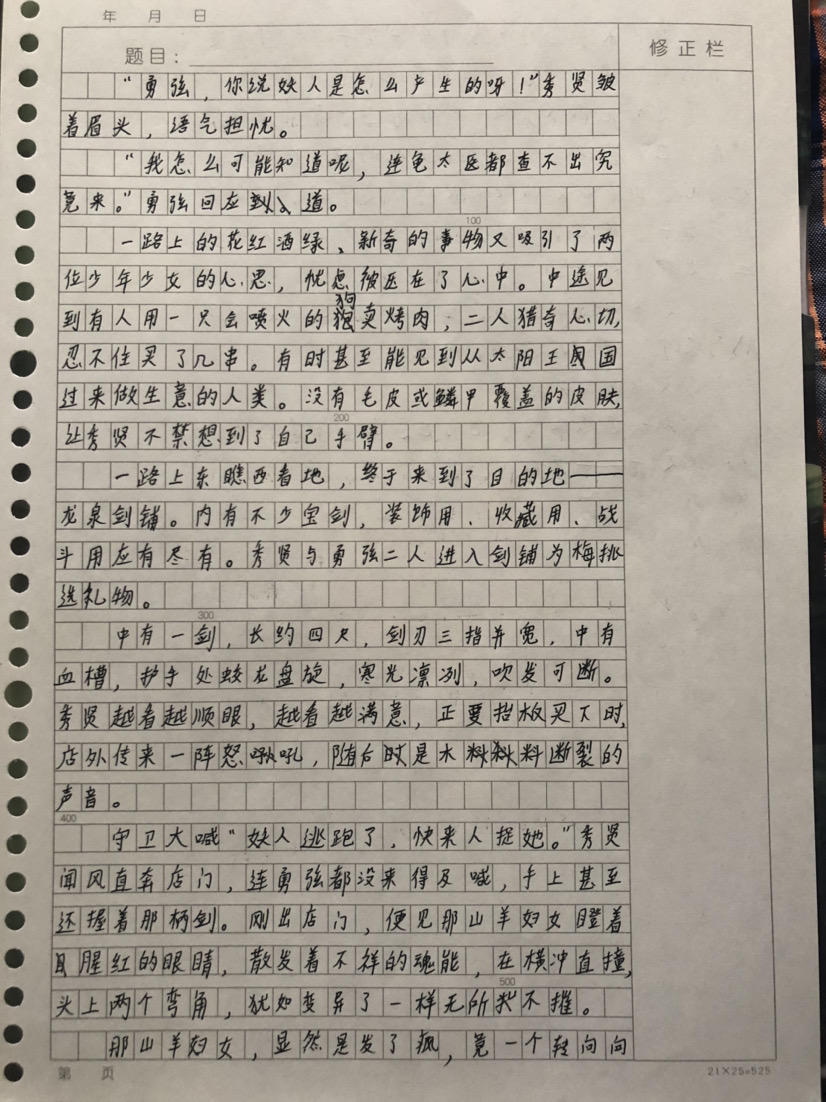 年 月 日
题目：
修正栏
“勇弦，你说妖人是怎么产生的呀！”秀贤皱
着眉头，语气担忧。
“我怎么可能知道呢，连龟太医都查不出究
竟来。”勇弦回应道。
100
一路上的花红酒绿、新奇的事物又吸引了两
位少年少女的心思，忧虑被压在了心中。中途见
到有人用一只会喷火的狗卖烤肉，二人猎奇心切，
忍不住买了几串。有时甚至能见到从太阳王国
过来做生意的人类。没有毛皮或鳞甲覆盖的皮肤，
200
让秀贤不禁想到了自己手臂。
一路上东瞧西看地，终于来到了目的地——
龙泉剑铺。内有不少宝剑，装饰用、收藏用、战
斗用应有尽有。秀贤与勇弦二人进入剑铺为梅挑
选礼物。
300
中有一剑，长约四尺，剑刃三指并宽，中有
血槽，护手处蛟龙盘旋，寒光凛冽，吹发可断。
秀贤越看越顺眼，越看越满意，正要拍板买下时，
店外传来一阵怒吼，随后时是木料断裂的
声音。
400
守卫大喊“妖人逃跑了，快来人捉她。”秀贤
闻风直奔店门，连勇弦都没来得及喊，手上甚至
还握着那柄剑。刚出店门，便见那山羊妇女瞪着
腥红的眼睛，散发着不祥的魂能，在横冲直撞，
500
头上两个弯角，犹如变异了一样无所不摧。
那山羊妇女，显然是发了疯，竟一个转向向
第 页
21×25=525